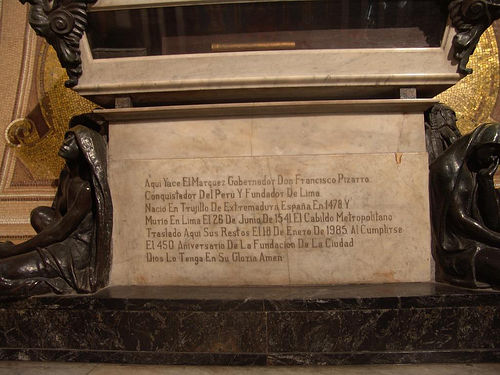 Aqui Yace El Marquez Gobernador Don Francisco Pizarro
Conquistador Del Peru Y Fundador De Lima
Nacio En Trujillo De Extremadura España En 1478 Y
Murio En Lima El 26 De Junio De 1541 El Cabildo Metropolitano
Traslado Aqui Sus Restos El 18 De Enero De 1985 Al Cumplirse
El 450 Aniversario De La Fundacion De La Ciudad
Dios Lo Tenga En Su Gloria Amen